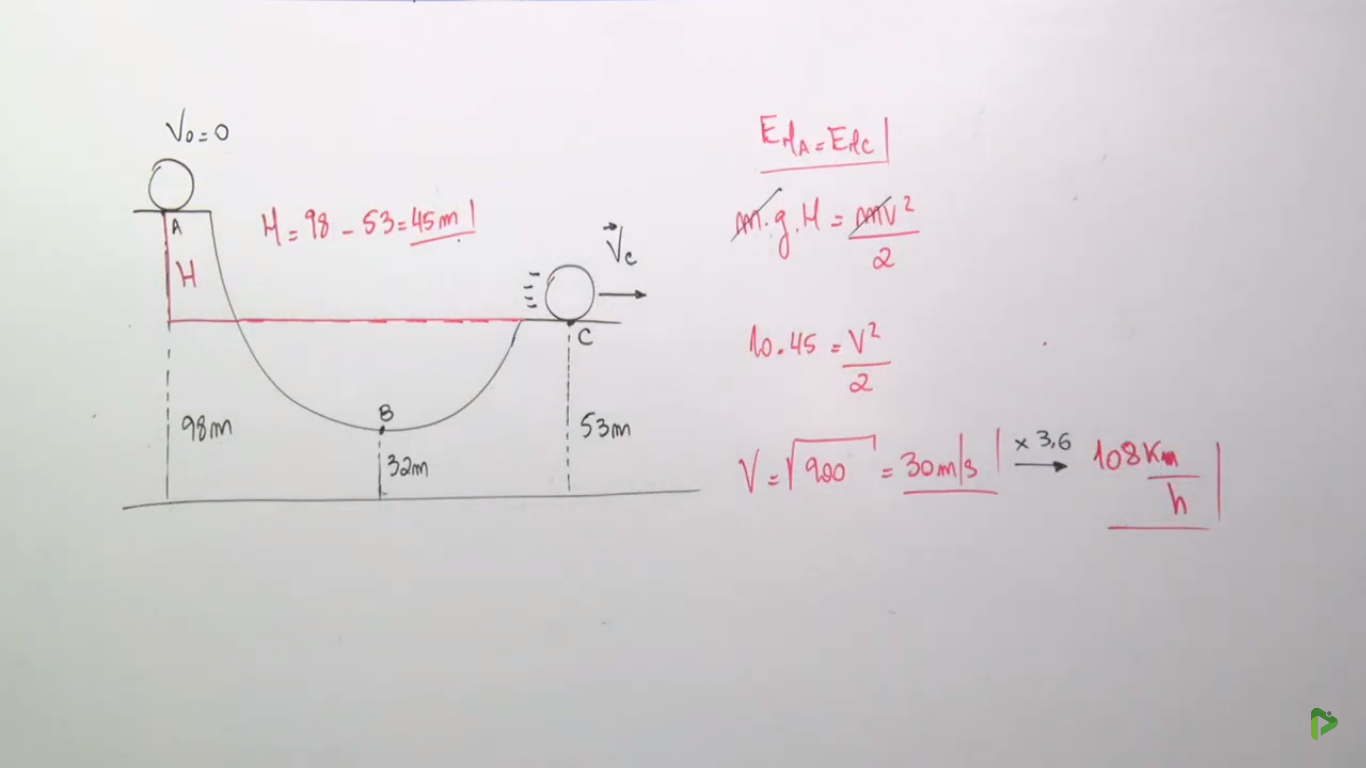 V₀ = 0
A
H
H = 98 - 53 = 45m
V⃗c
C
B
98m
32m
53m
EMA = EMC
m.g.H = mv²/2
10.45 = V²/2
V = √900 = 30m/s × 3,6 → 108 Km/h